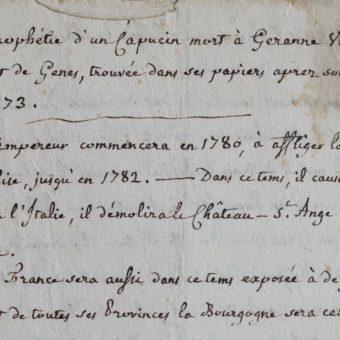 ophétie d'un Capucin mort à Geranne V
t de Genes, trouvée dans ses papiers aprez so
73.
empereur commencera en 1780, à affliger l
lise, jusqu'en 1782. — Dans ce tems, il caus
l'Italie, il démolira le Château - St. Ange
France sera aussi dans ce tems exposée à de
t de toutes ses Provinces la Bourgogne sera ce